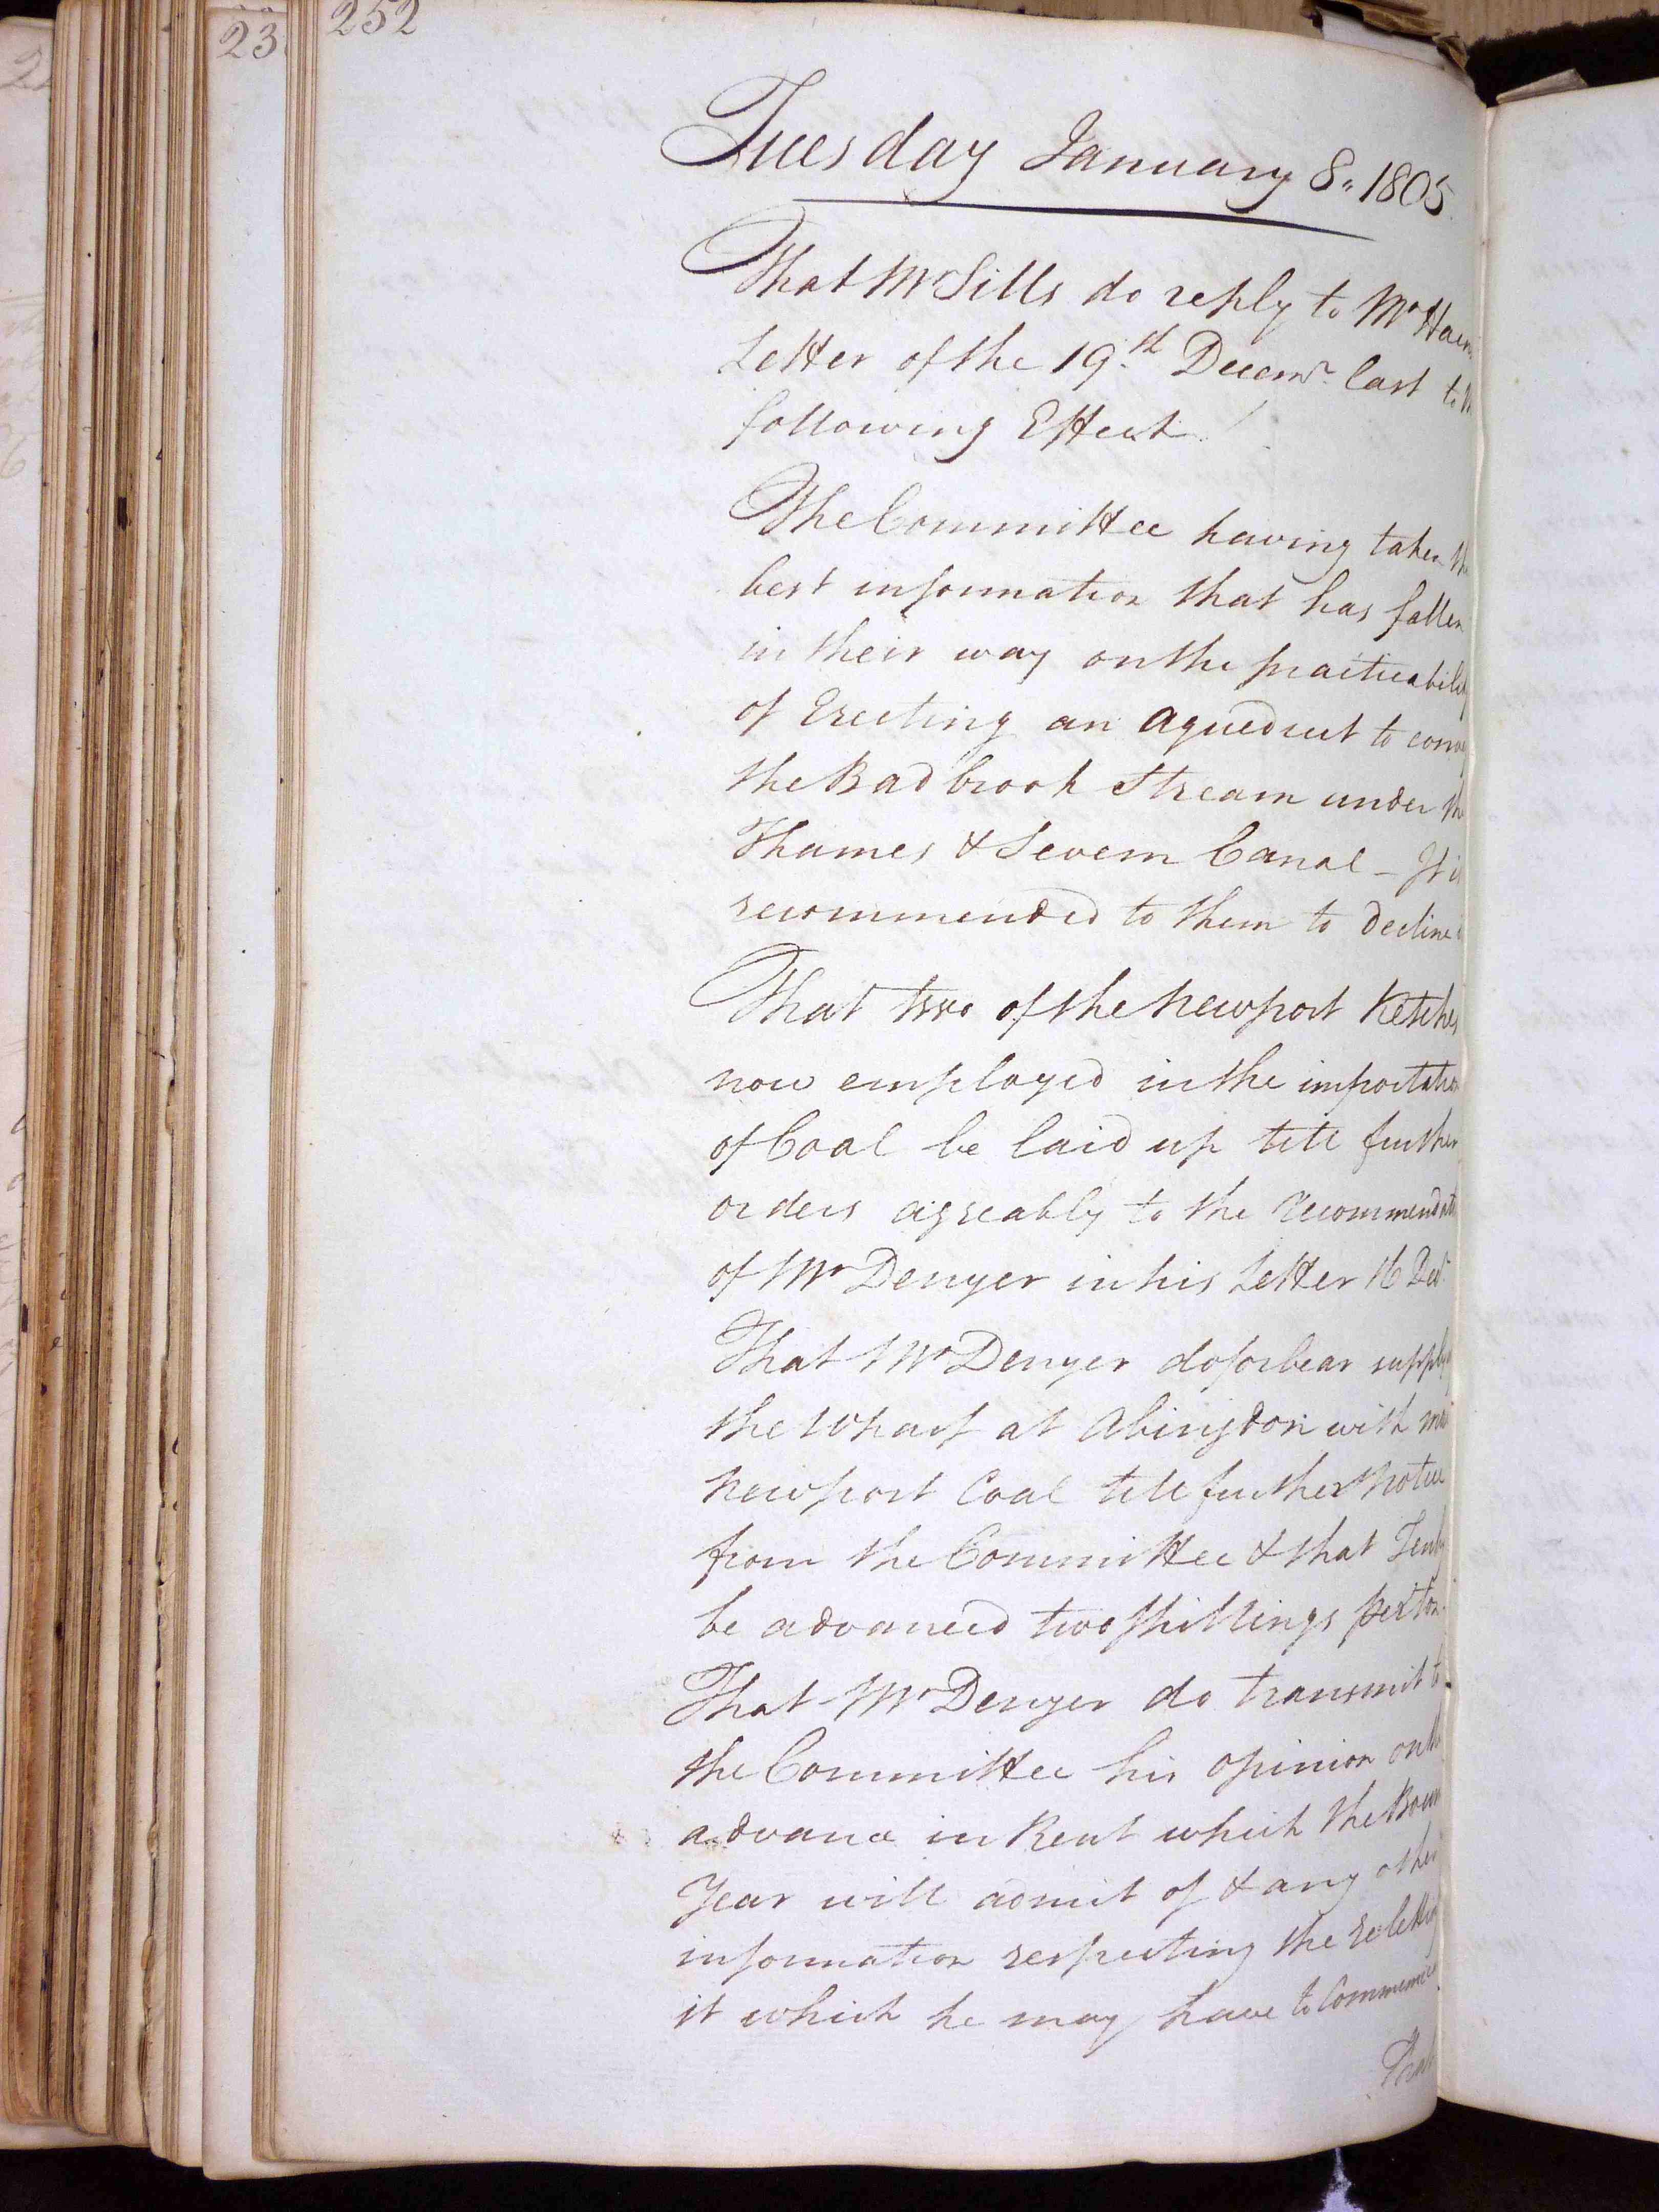 252
23
Tuesday January 8. 1805
That Mr Sills do reply to Mr
Letter of the 19th Decemr. last to
following Effect.
The Committee having taken
best information that has fallen
in their way on the practicability
of Erecting an Aqueduct to convey
the Badbrook Stream under the
Thames & Severn Canal – It is
recommended to them to decline
That two of the Newport Ketches
now employed in the importation
of Coal be laid up till further
orders agreably to the recommendat
of Mr Denyer in his Letter 16 Decr.
That Mr Denyer do forbear supply
the Wharf at Abingdon with
Newport Coal till further Notice
from the Committee & that Tenby
be advanced two Shillings per ton.
That Mr Denyer do transmit to
the Committee his opinion on the
advance in Rent which the
Year will admit of & any other
information respecting the reletting
it which he may have to Communicate
That